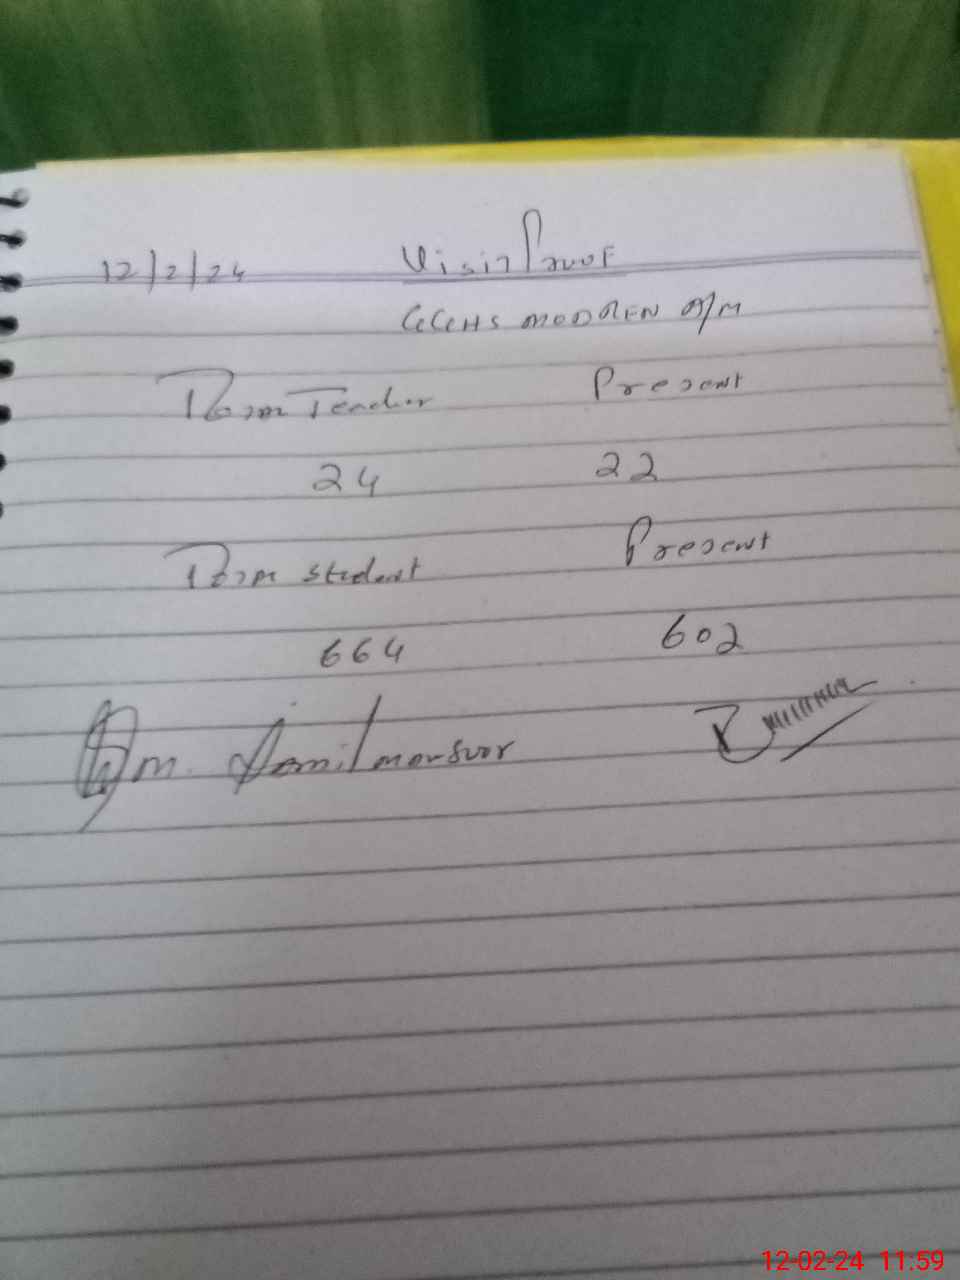 12/2/24 Visit Proof
GGHS MODREN D/M
Teacher Present
24 22
Student Present
664 602
M. Jamil mansoor
12-02-24 11:59